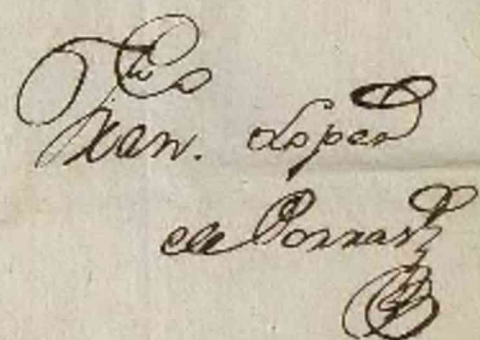 Fran. Lopez
de Porras